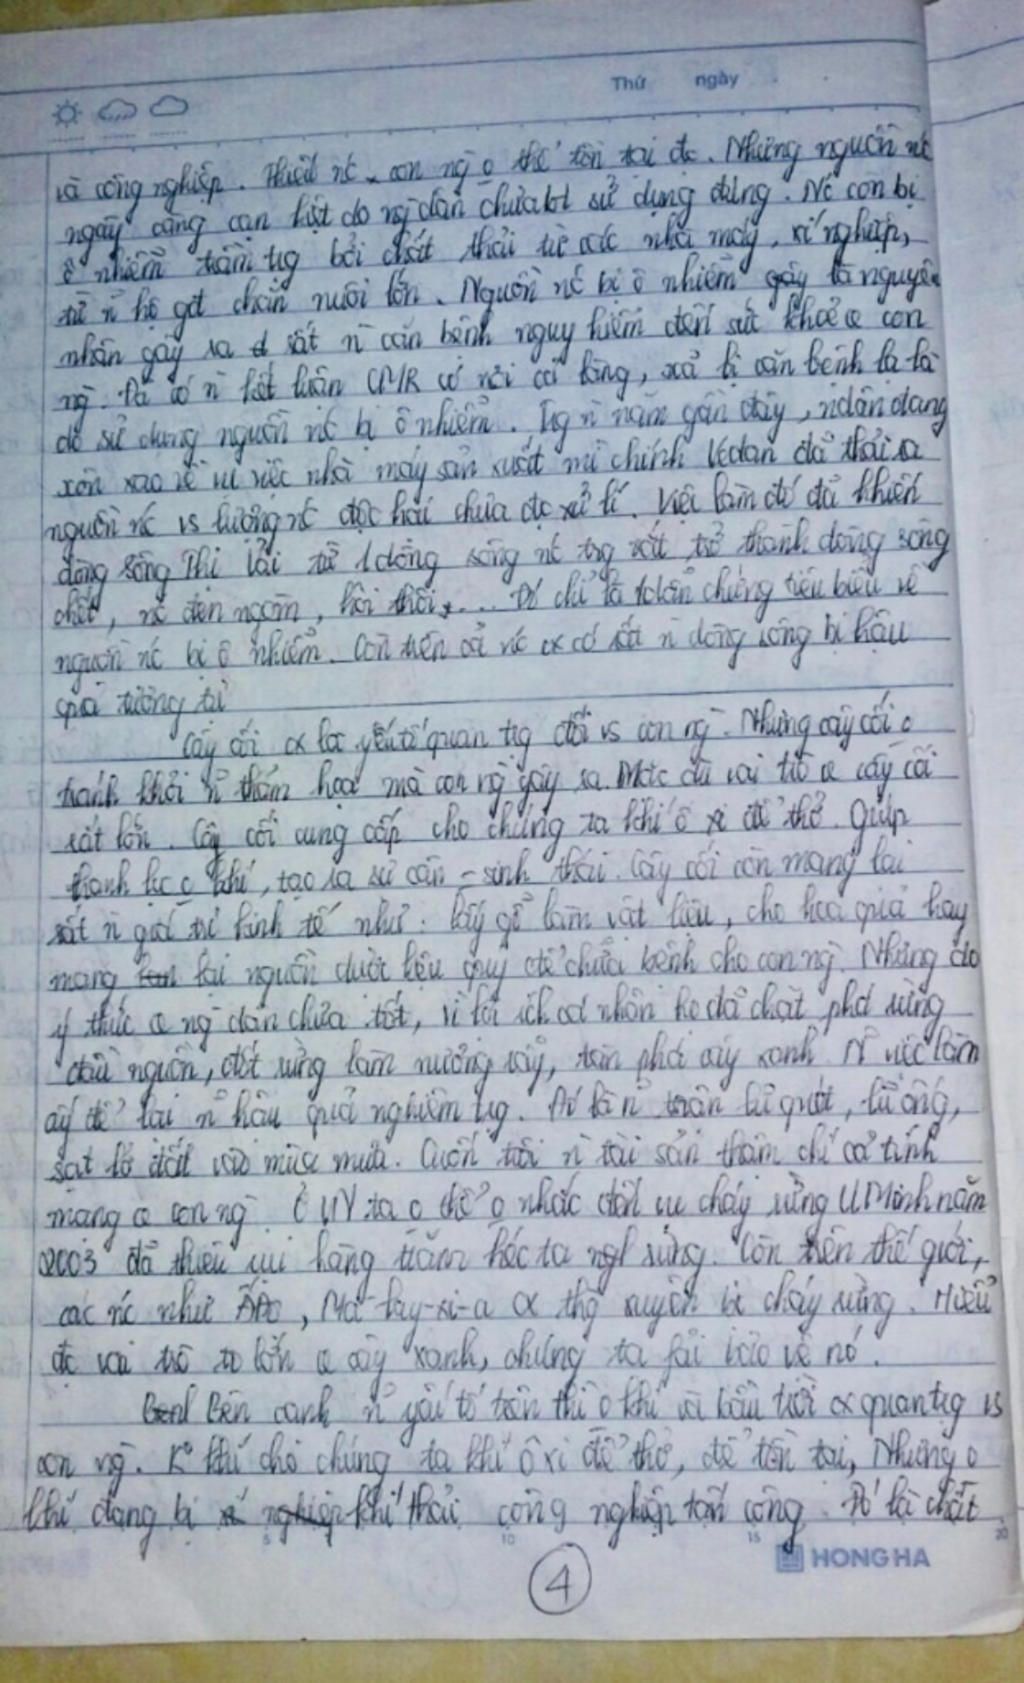 Thứ ngày
và công nghiệp. Thiếu nc con ng o thể tồn tại đc. Những nguồn nc
ngày càng cạn kiệt do ng dân chưa bt sử dụng đúng. Nc còn bị
ô nhiễm trầm tg bởi chất thải từ các nhà máy, xí nghiệp,
từ n hộ gđ chăn nuôi lớn. Nguồn nc bị ô nhiễm gây là nguyên
nhân gây ra rất n căn bệnh nguy hiểm đến sức khoẻ con
ng. Đã có n kết luận CMR có cả làng, xã bị căn bệnh lạ là
do sử dụng nguồn nc bị ô nhiễm. Tg n năm gần đây, ndân đang
xôn xao về vụ việc nhà máy sản xuất mì chính Vedan đã thải ra
nguồn nc vs lượng nc độc hại chưa đc xử lí. Việc làm đó đã khiến
dòng sông Thị Vải từ 1 dòng sông nc tg mát trở thành dòng sông
chết, nc đen ngòm, hôi thối,... Đó chỉ là 1 dẫn chứng tiêu biểu về
nguồn nc bị ô nhiễm. Còn trên cả nc cx có rất n dòng sông bị hậu
quả tương tự
Cây cối cx là yếu tố quan tg đối vs con ng. Nhưng cây cối o
tránh khỏi n thảm hoạ mà con ng gây ra. Mặc dù vai trò cây cối
rất lớn. Cây cối cung cấp cho chúng ta khí ô xi để thở. Giúp
thanh lọc o khí, tạo ra sự cân = sinh thái. Cây cối còn mang lại
rất n giá trị kinh tế như: lấy gỗ làm vật liệu, cho hoa quả hay
mang lại nguồn dược liệu quý để chữa bệnh cho con ng. Nhưng do
ý thức ng dân chưa tốt, vì lợi ích cá nhân họ đã chặt phá rừng
đầu nguồn, đốt rừng làm nương rẫy, tàn phá cây xanh. N việc làm
ấy để lại n hậu quả nghiêm tg. Đó là n trận lũ quét, lũ ống,
sạt lở đất vào mùa mưa. Cuốn trôi n tài sản thậm chí cả tính
mạng con ng. Ở VN ta o thể o nhắc đến vụ cháy rừng U Minh năm
2003 đã thiêu rụi hàng trăm héc ta rừng. Còn trên thế giới,
các nc như Ma-lay-si-a cx thg xuyên bị cháy rừng. Hiểu
đc vai trò to lớn cây xanh, chúng ta fải bảo vệ nó.
Bên cạnh n yếu tố trên thì o khí và bầu trời cx quan tg vs
con ng. K khí cho chúng ta khí ô xi để thở, để tồn tại, Nhưng o
khí đang bị khí thải công nghiệp tấn công. Đó là chất
5 10 15 20
HONG HA
4